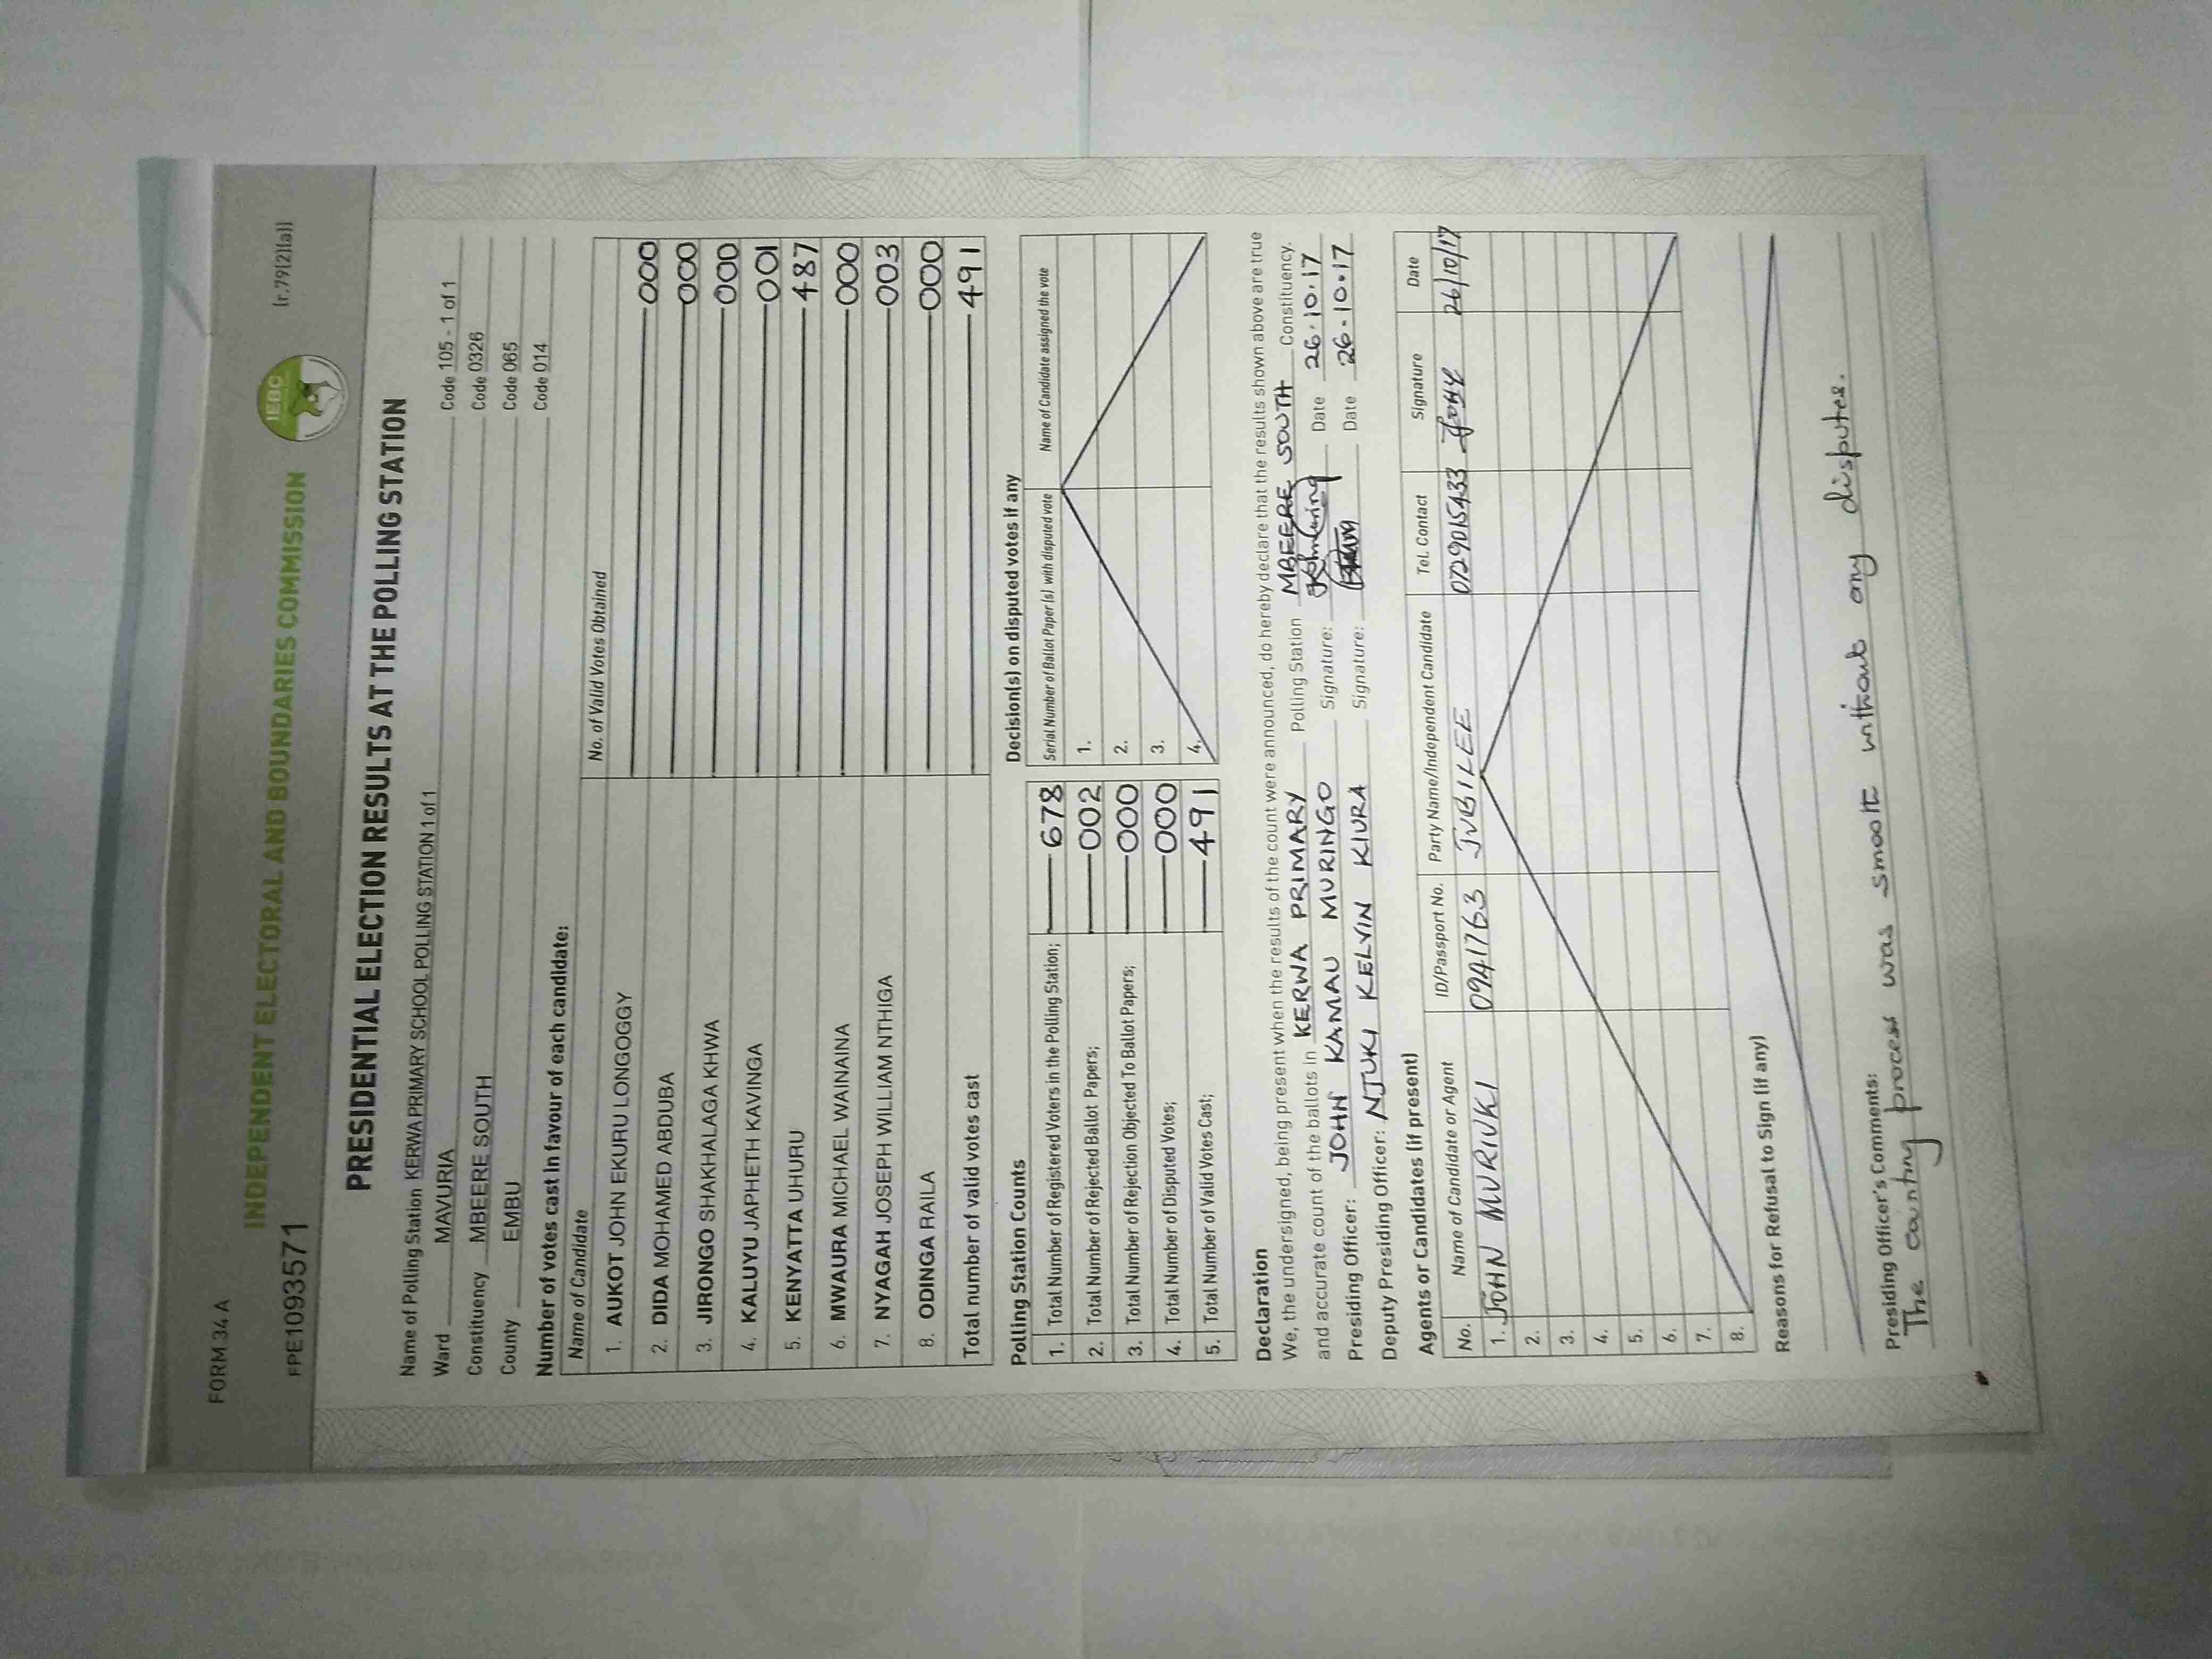 FORM 34 A
[r.79(2)(a)]
INDEPENDENT ELECTORAL AND BOUNDARIES COMMISSION
IEBC
FPE1093571
PRESIDENTIAL ELECTION RESULTS AT THE POLLING STATION
Name of Polling Station KERWA PRIMARY SCHOOL POLLING STATION 1 of 1
Ward MAVURIA Code 105 - 1 of 1
Constituency MBEERE SOUTH Code 0326
County EMBU Code 065
Code 014
Number of votes cast in favour of each candidate:
Name of Candidate No. of Valid Votes Obtained
1. AUKOT JOHN EKURU LONGOGGY 000
2. DIDA MOHAMED ABDUBA 000
3. JIRONGO SHAKHALAGA KHWA 000
4. KALUYU JAPHETH KAVINGA 001
5. KENYATTA UHURU 487
6. MWAURA MICHAEL WAINAINA 000
7. NYAGAH JOSEPH WILLIAM NTHIGA 003
8. ODINGA RAILA 000
Total number of valid votes cast 491
Polling Station Counts
1. Total Number of Registered Voters in the Polling Station; 678
2. Total Number of Rejected Ballot Papers; 002
3. Total Number of Rejection Objected To Ballot Papers; 000
4. Total Number of Disputed Votes; 000
5. Total Number of Valid Votes Cast; 491
Decision(s) on disputed votes if any
Serial Number of Ballot Paper (s) with disputed vote Name of Candidate assigned the vote
1.
2.
3.
4.
Declaration
We, the undersigned, being present when the results of the count were announced, do hereby declare that the results shown above are true
and accurate count of the ballots in KERWA PRIMARY Polling Station MBEERE SOUTH Constituency.
Presiding Officer: JOHN KAMAU MURINGO Signature: Date 26.10.17
Deputy Presiding Officer: NJUKI KELVIN KIURA Signature: Date 26.10.17
Agents or Candidates (if present)
No. Name of Candidate or Agent ID/Passport No. Party Name/Independent Candidate Tel. Contact Signature Date
1. JOHN MURIUKI 0941763 JUBILEE 0729015433 26/10/17
2.
3.
4.
5.
6.
7.
8.
Reasons for Refusal to Sign (if any)
Presiding Officer's Comments:
The counting process was smoot without any disputes.